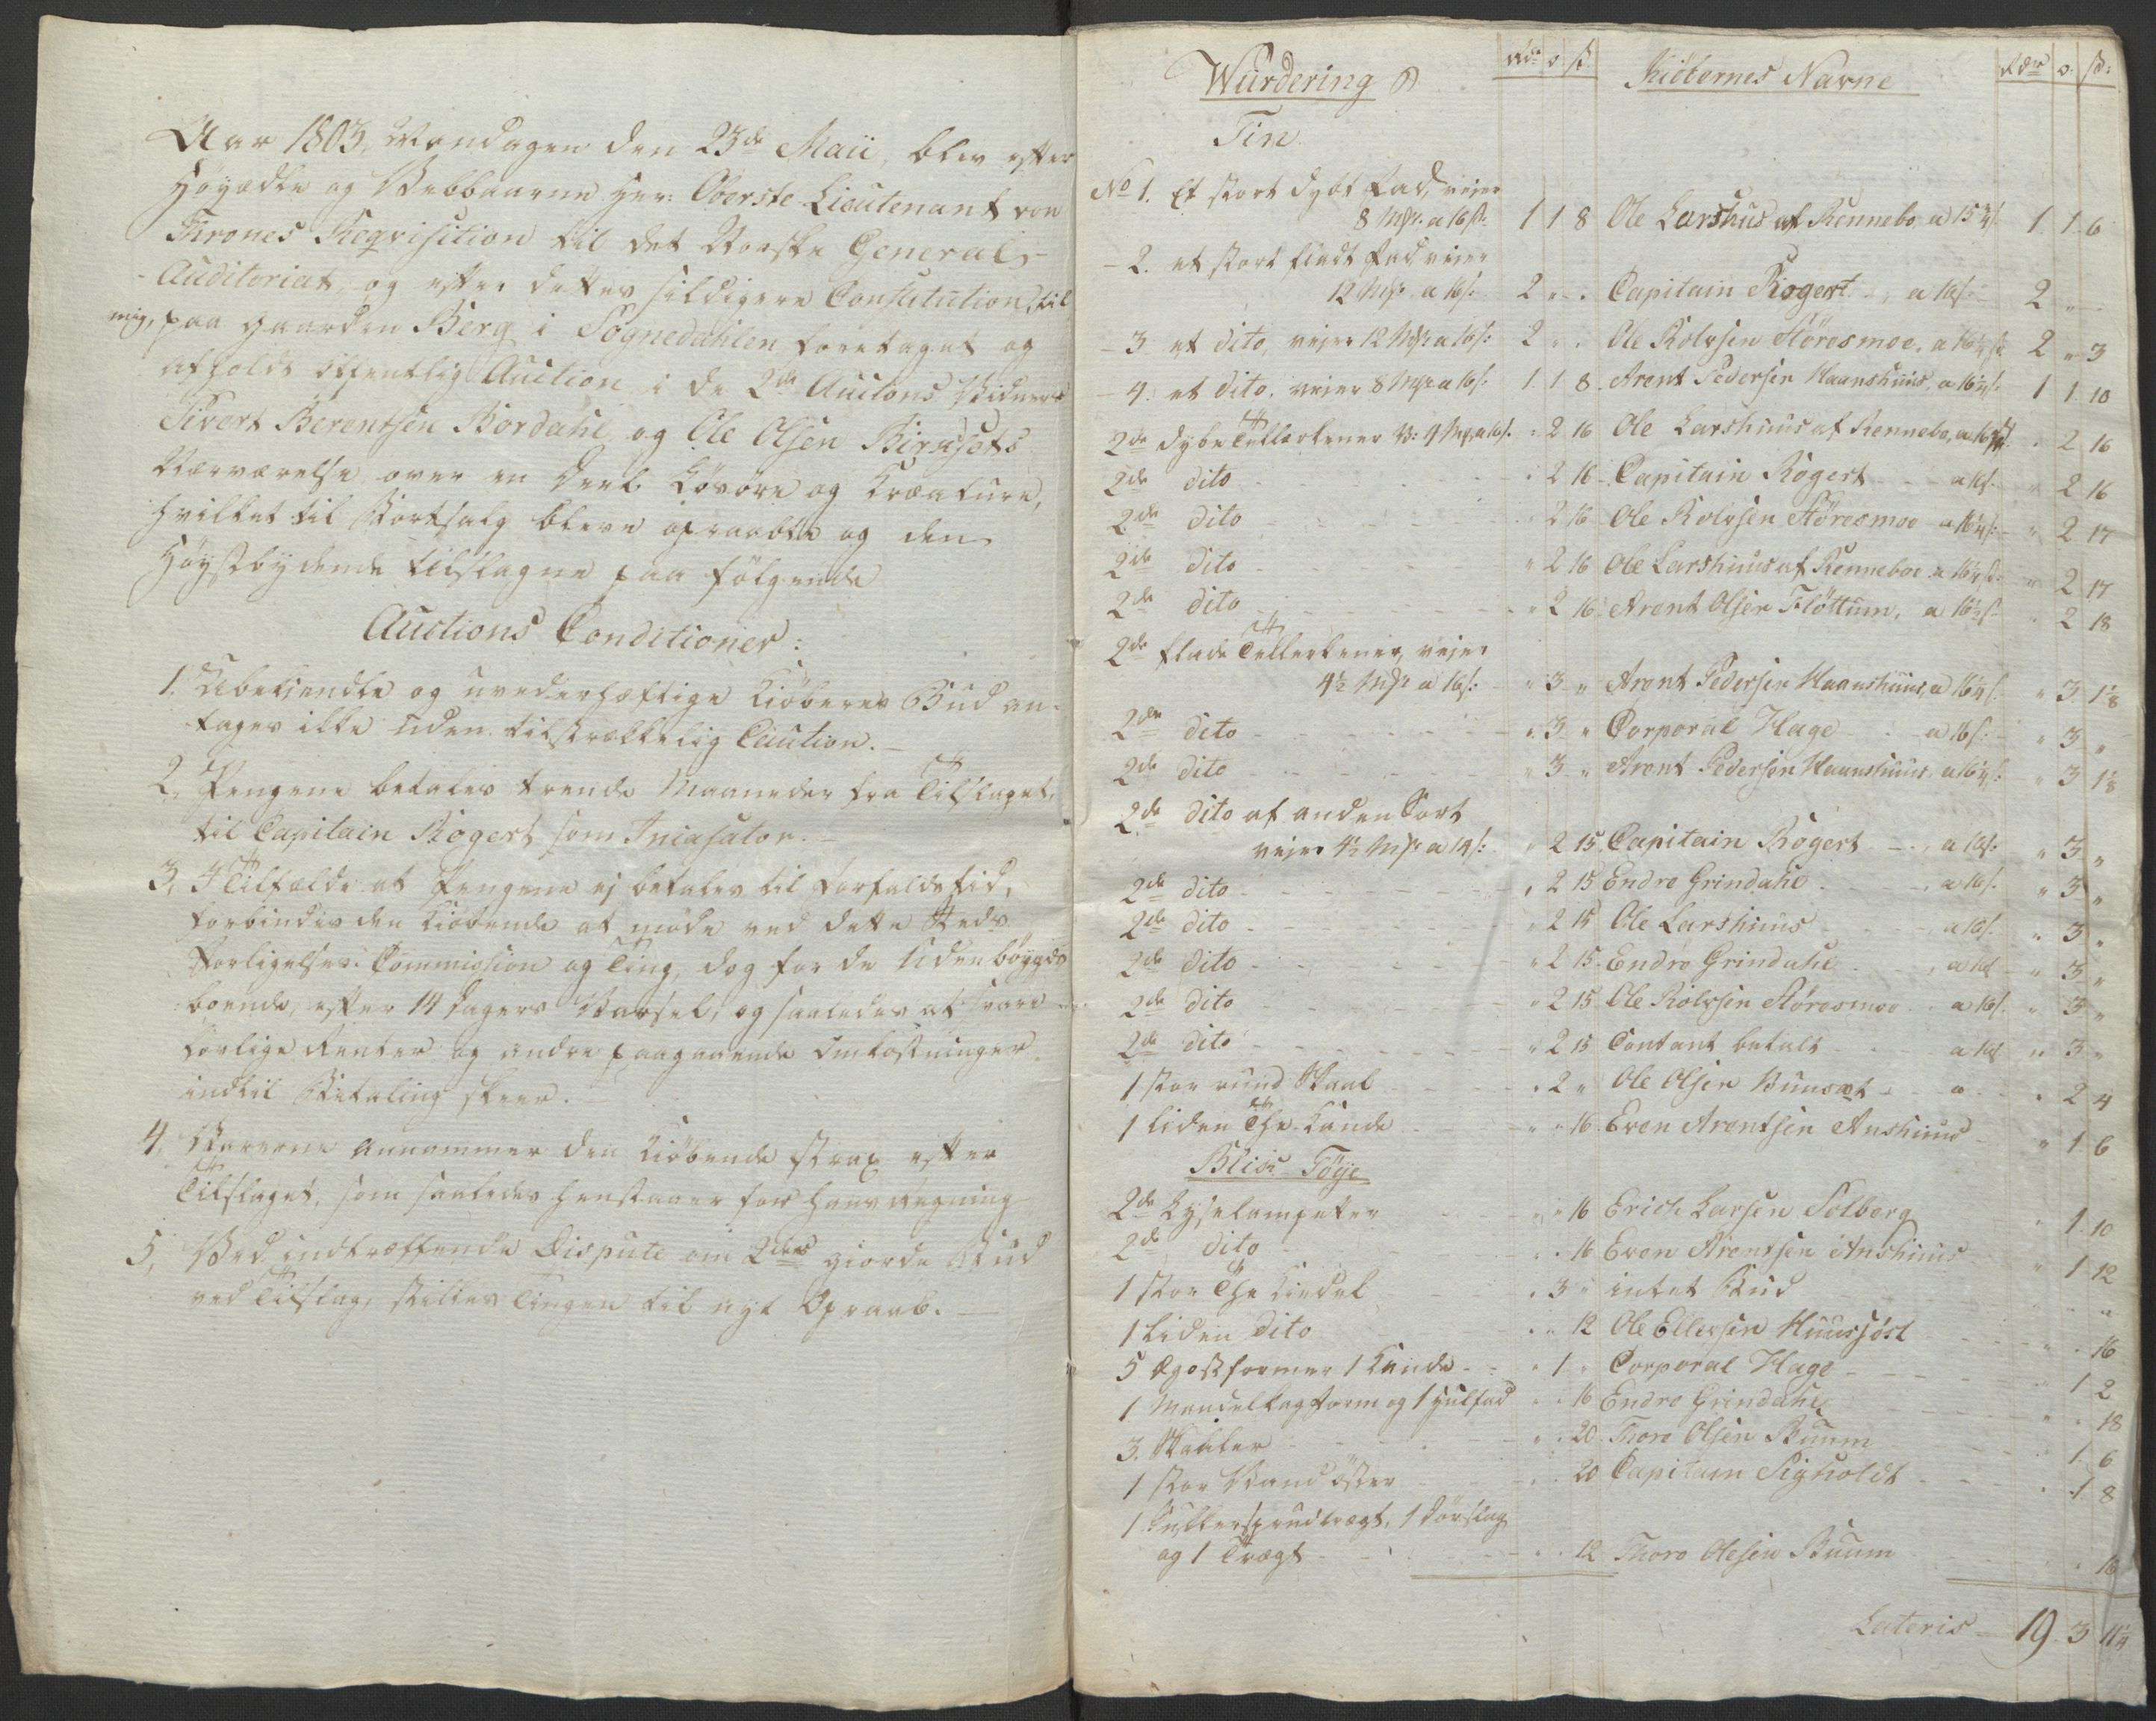 Aar 1803, Mandagen den 23de Maii, blev efter
Høyædle og Velbaarne Herr Oberste Lieutenant von
Krones Reqvisition til det Norske Generals-
Auditoriat, og efter dettes sildigere Constitution til
mig, paa Gaarden Berg i Sognedahlen foretaget og
afholdt offentlig Auction i de 2de Auctions Vidners
Sivert Berentsen Bordahl og Ole Olsen Birksets
Nærværelse over en Deel Løsøre og Kreature,
hvilket til Bortsalg bleve opraabte og den
Høystbydende tilslagne paa følgende
Auctions Conditioner:
1. Ubekiendte og uvederhæftige Kiøberes Bud an-
tages ikke uden tilstrækkelig Caution.
2. Pengene betales trende Maaneder fra Tilslaget,
til Capitain Rogert som Incasator.
3, I Tilfælde at Pengene ej betales til Forfaldstid,
forbindes den Kiøbende at møde ved dette Steds
Forligelses Commission og Ting, dog for de Udenbøygds
boende, efter 14 Dagers Varsel, og saaledes at svare
lovlige Renter og andre paagaaende Omkostninger
indtil Betaling skeer.
4, Varerne annammer den Kiøbende strax efter
Tilslaget, som saaledes henstaaer for hans Regning
5, Ved indtræffende Dispute om 2des giorde Bud
ved Tilslag, stilles Tingen til nyt Opraab.
Wurdering Rdr o. s. Kiøbernes Navne Rdr o. s:
Tin
No 1. Et stort dybt Fad, veier
8 Mk a 16 s: 1 1 8 Ole Larshus af Rennebo, a 15 3/4 s. 1 1 6
- 2. et stort fladt Fad veier
12 Mk a 16 s: 2 " . Capitain Rogert a 16 s. 2 "
- 3 et dito, veier 12 Mk a 16 s: 2 " . Ole Rolvsen Støresmoe, a 16 1/4 s. 2 " 3
- 4. et dito, veier 8 Mk a 16 s: 1 1 8 Arent Pedersen Haanshuus, a 16 1/4 s. 1 1 10
2de dybe Tallerkener V: 4 Mk a 16 s. " 2 16 Ole Larshuus af Rennebo, a 16 s. " 2 16
2de dito " 2 16 Capitain Rogert a 16 s. " 2 16
2de dito " 2 16 Ole Rolvsen Støresmoe a 16 1/4 s. " 2 17
2de dito " 2 16 Ole Larshuus af Renneboe a 16 1/4 s. " 2 17
2de dito " 2 16 Arent Olsen Fløttum, a 16 1/2 s. " 2 18
2de flade Tellerkener, veier
4 1/2 Mk a 16 s: " 3 " Arent Pedersen Haanshuus, a 16 1/4 s. " 3 1 1/8
2de dito " 3 " Corporal Hage a 16 s. " 3 "
2de dito " 3 " Arent Pedersen Haanshuus, a 16 1/4 s. " 3 1 1/8
2de dito af anden Sort
veier 4 1/2 Mk a 14 s: " 2 15 Capitain Rogert a 16 s. " 3 "
2de dito " 2 15 Endre Grindahl a 16 s. " 3 "
2de dito " 2 15 Ole Larshuus a 16 s. " 3 "
2de dito " 2 15 Endre Grindahl a 16 s " 3 "
2de dito " 2 15 Ole Rolvsen Støresmoe a 16 s. " 3 "
2de dito " 2 15 Contant betalt a 16 s " 3 "
1 stor rund Skaal " 2 " Ole Olsen Buusæt a " 2 4
1 liden The Kande " " 16 Even Arentsen Anshuus " 1 6
Blik Tøye
2de Lyselampeter " " 16 Erich Larsen Solberg " 1 10
2de dito " " 16 Even Arentsen Anshuus " 1 12
1 stor The Kiedel " 3 " intet Bud "
1 liden dito " " 12 Ole Ellevsen Huussøst " " 16
5 Ogostformer 1 Kande " 1 " Corporal Hage " 1 2
1 Mandelkagform og 1 Hulfad " " 16 Endre Grindahl " " 18
3. Skaaler " " 20 Thore Olsen Buum " 1 6
1 stor Vandøster " " 20 Capitain Sigholdt " 1 8
1 1 Dørslag
og 1 Tragt " " 12 Thore Olesen Buum " " 16
Lateris 19 3 11 1/4